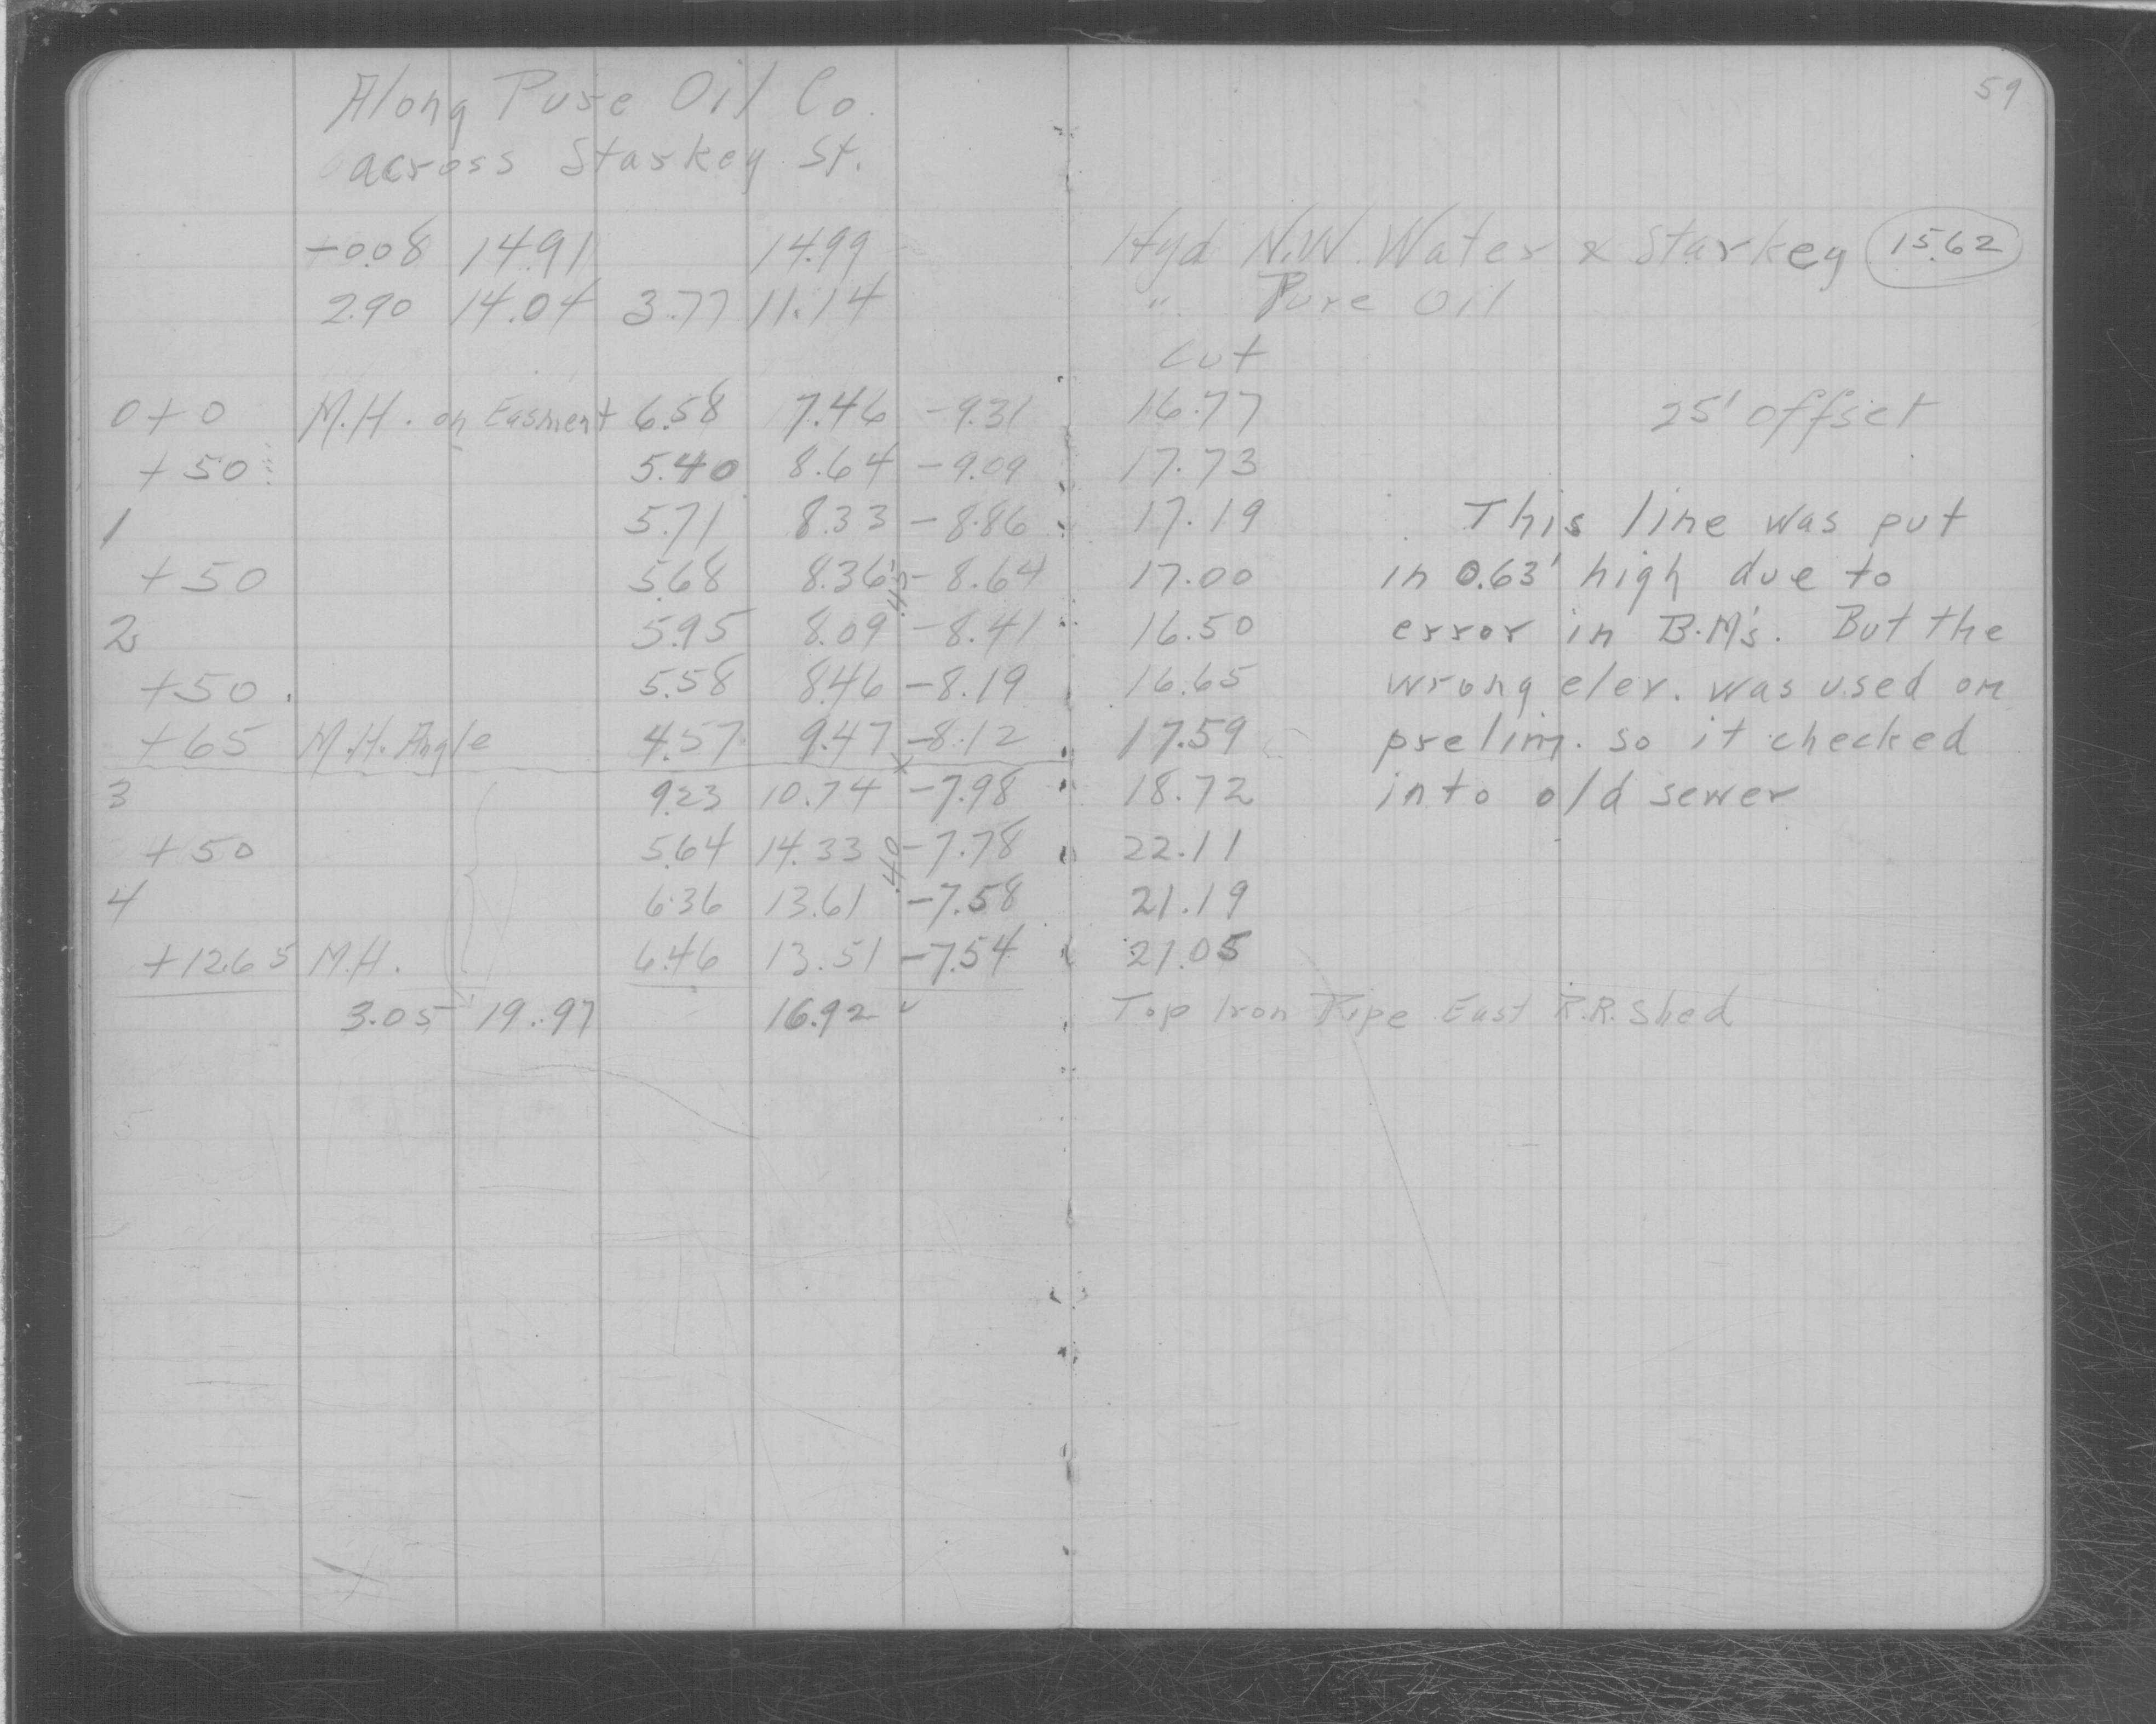 59
Along Pure Oil Co.
across Starkey St.
-0.08 14.91 14.99 Hyd N.W. Water & Starkey 15.62
2.90 14.04 3.77 11.14 " Pure Oil
Cut
0+0 M.H. on Easment 6.58 7.46 -9.31 16.77 25' offset
+50 5.40 8.64 -9.09 17.73
1 5.71 8.33 -8.86 17.19 This line was put
+50 5.68 8.36 .45 -8.64 17.00 in 0.63' high due to
2 5.95 8.09 -8.41 16.50 error in B.M's. But the
+50 5.58 8.46 -8.19 16.65 wrong elev. was used on
+65 M.H. Angle 4.57 9.47 -8.12 17.59 prelim. so it checked
3 9.23 10.74 -7.98 18.72 into old sewer
+50 5.64 14.33 .40 -7.78 22.11
4 6.36 13.61 -7.58 21.19
+12.65 M.H. 6.46 13.51 -7.54 21.05
3.05 19.97 16.92 Top Iron Pipe East R.R. Shed